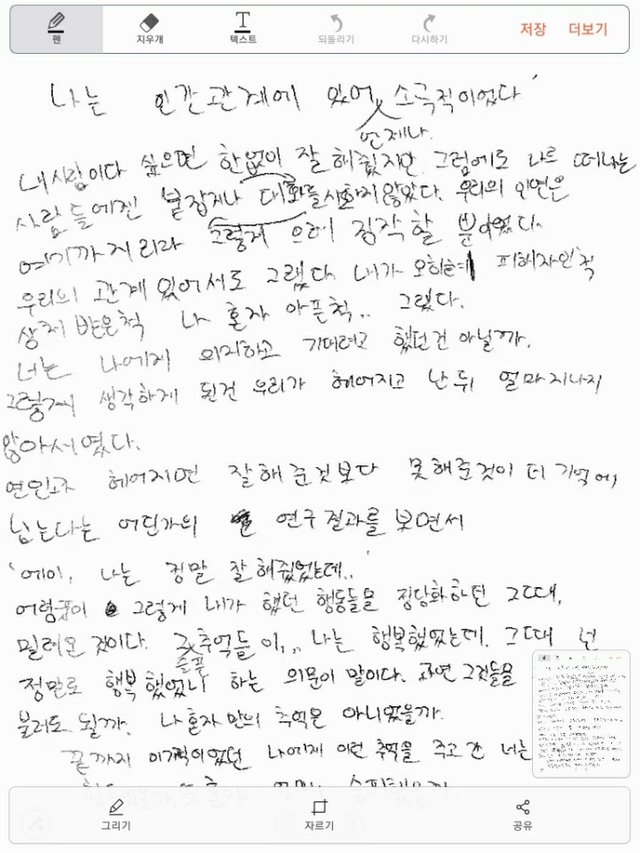 펜 지우개 텍스트 되돌리기 다시하기 저장 더보기
나는 인간관계에 있어 소극적이었다.
언제나.
내사람이다 싶으면 한없이 잘 해줬지만 그럼에도 나를 떠나는
사람들에겐 붙잡거나 대화를시도하지않았다. 우리의 인연은
여기까지리라 그렇게 으레 짐작할 뿐이었다.
우리의 관계있어서도 그랬다. 내가 오히려 피해자인척
상처 받은척 나 혼자 아픈척.. 그랬다.
너는 나에게 의지하고 기대려고 했던건 아닐까.
그렇게 생각하게 된건 우리가 헤어지고 난 뒤 얼마지나지
않아서였다.
연인과 헤어지면 잘해준것보다 못해준것이 더 기억에
남는다는 어딘가의 연구결과를 보면서
'에이, 나는 정말 잘해줬었는데..'
어렴풋이 그렇게 내가 했던 행동들을 정당화하던 그때,
밀려온 것이다. 그 추억들이... 나는 행복했었는데. 그때 넌
슬픈
정말로 행복했었니 하는 의문이 말이다. 과연 그것들을
불러도 될까. 나혼자만의 추억은 아니었을까.
끝까지 이기적이었던 나에게 이런 추억을 주고 간 너는
그리기 자르기 공유